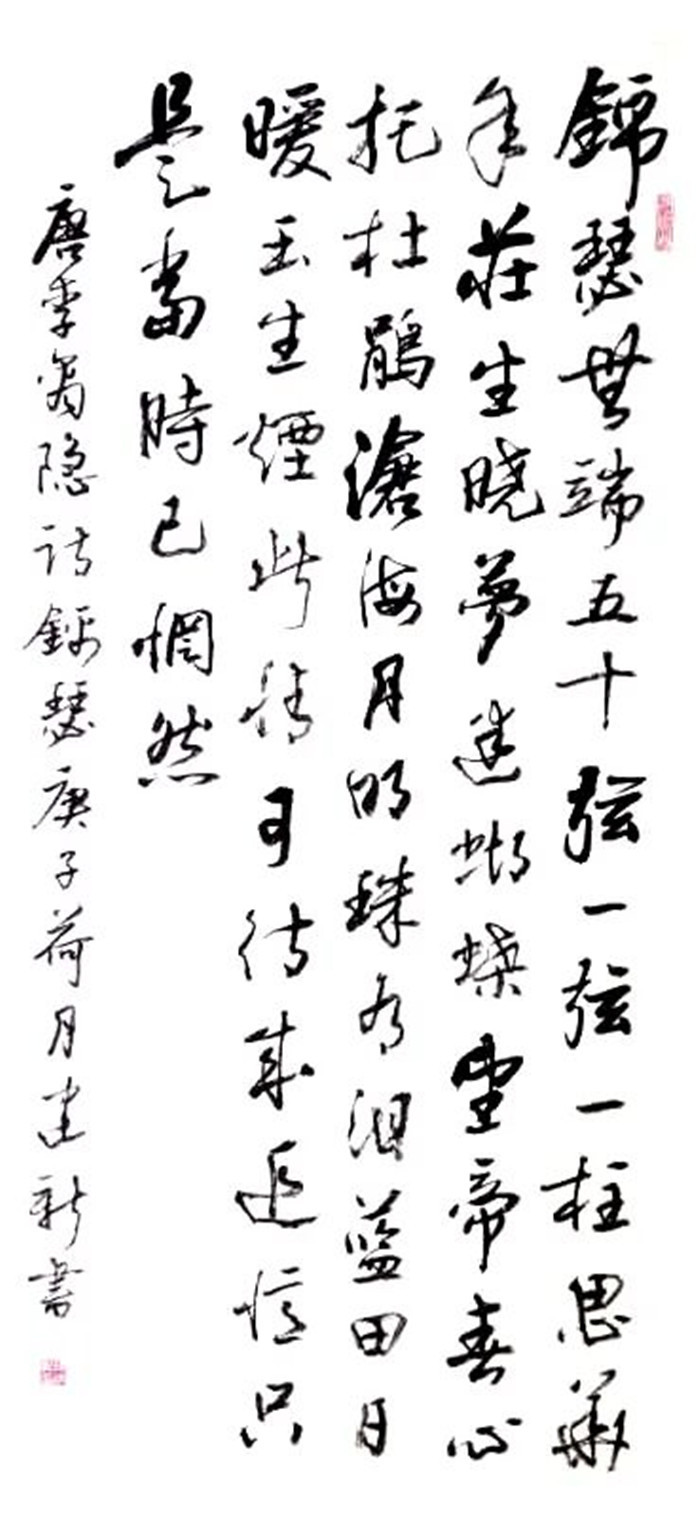 錦瑟無端五十弦一弦一柱思華
年莊生曉夢迷蝴蝶望帝春心
托杜鵑滄海月明珠有淚藍田日
暖玉生煙此情可待成追憶只
是當時已惘然
唐李商隐诗錦瑟庚子荷月建新書